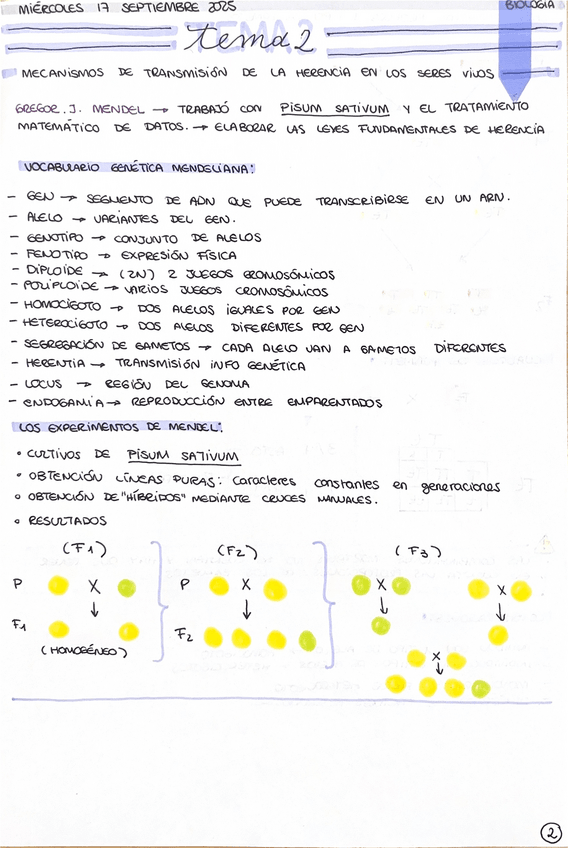 MIÉRCOLES 17 SEPTIEMBRE 2025
BIOLOGÍA
TEMA 2
tema 2
MECANISMOS DE TRANSMISIÓN DE LA HERENCIA EN LOS SERES VIVOS
GREGOR. J. MENDEL → TRABAJÓ CON PISUM SATIVUM Y EL TRATAMIENTO
MATEMÁTICO DE DATOS. → ELABORAR LAS LEYES FUNDAMENTALES DE HERENCÍA
VOCABULARIO GENÉTICA MENDELIANA:
- GEN → SEGMENTO DE ADN QUE PUEDE TRANSCRIBIRSE EN UN ARN.
- ALELO → VARIANTES DEL GEN.
- GENOTIPO → CONJUNTO DE ALELOS
- FENOTIPO → EXPRESIÓN FÍSICA
- DIPLOIDE → (2N) 2 JUEGOS CROMOSÓMICOS
- POLIPLOIDE → VARIOS JUEGOS CROMOSÓMICOS
- HOMOCIGOTO → DOS ALELOS IGUALES POR GEN
- HETEROCIGOTO → DOS ALELOS DIFERENTES POR GEN
- SEGREGACIÓN DE GAMETOS → CADA ALELO VAN A GAMETOS DIFERENTES
- HERENTIA → TRANSMISIÓN INFO GENÉTICA
- LOCUS → REGIÓN DEL GENOMA
- ENDOGAMIA → REPRODUCCIÓN ENTRE EMPARENTADOS
LOS EXPERIMENTOS DE MENDEL:
• CULTIVOS DE PISUM SATIVUM
• OBTENCIÓN LÍNEAS PURAS: caracteres constantes en generaciones
• OBTENCIÓN DE "HÍBRIDOS" MEDIANTE CRUCES MANUALES.
• RESULTADOS
(F1) (F2) (F3)
P X P X X X
F1 F2
(HOMOGÉNEO)
X
2